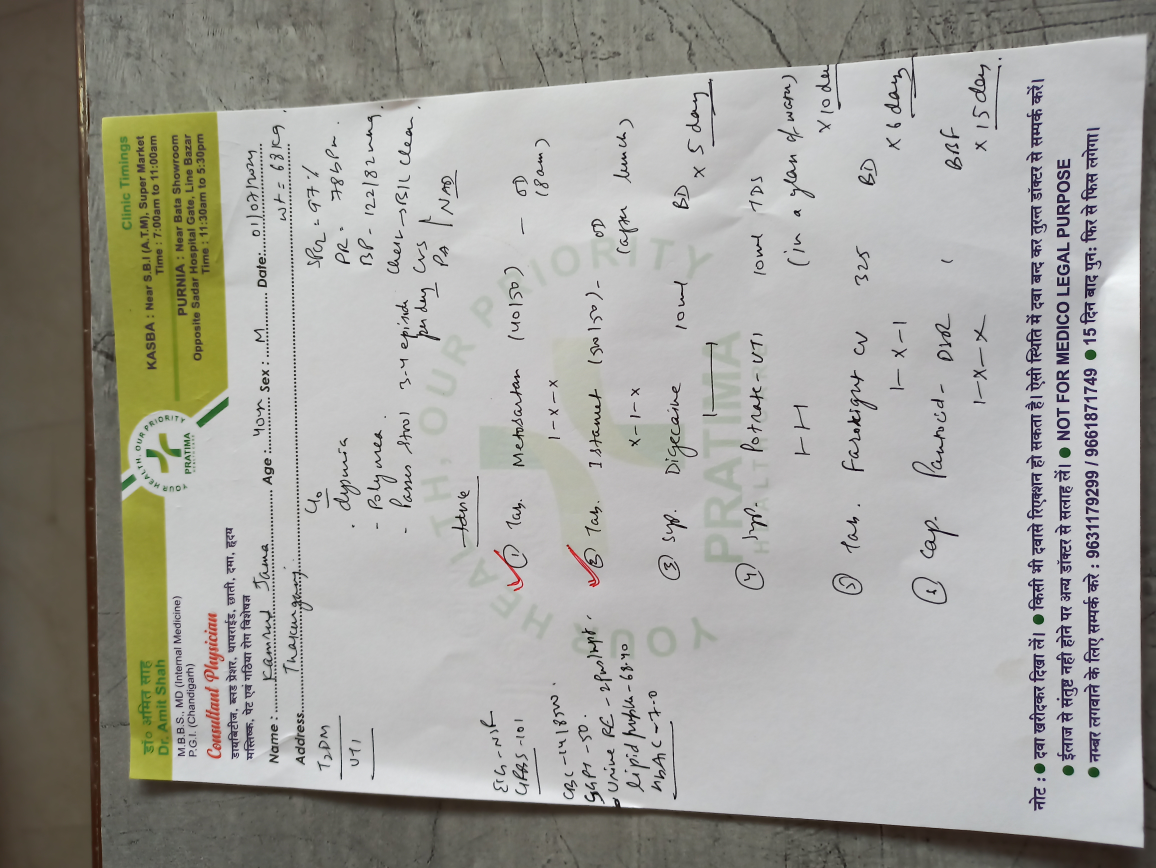 डॉ० अमित साह
Dr. Amit Shah
M.B.B.S., MD (Internal Medicine)
P.G.I. (Chandigarh)
Consultant Physician
डायबिटीज, ब्लड प्रेशर, थायराईड, छाती, दमा, हृदय
मस्तिष्क, पेट एवं गठिया रोग विशेषज्ञ
YOUR HEALTH, OUR PRIORITY
PRATIMA
Clinic Timings
KASBA : Near S.B.I (A.T.M), Super Market
Time : 7:00am to 11:00am
PURNIA : Near Bata Showroom
Opposite Sadar Hospital Gate, Line Bazar
Time : 11:30am to 5:30pm
Name : Age : 40yr Sex : M Date: 01/07/2024
Address Thakurganj wt = 68 kg.
T2DM
UTI
c/o
- dysuria
- Polyurea
- Passes stool 3-4 episode per day
SPO2 = 97%
PR = 78bpm
BP - 122/82 mmHg
Chest -> B/L clear
CVS
PA NAD
GRBS - 101
CBC
SGPT - 50.
Urine RE
lipid profile - 68.40
HbA1C - 7.0
① Tab. Metosartan (40/50) - OD
1-x-x (8am)
② Tab. Istamet (50/50) - OD
x-1-x (after lunch)
③ Syp. Digecaine 10ml BD
x 5 day
④ Syp. Potrate-UTI 10ml TDS
(in a glass of water)
x 10 day
⑤ Tab. Farodight CV 325 BD
1-x-1 x 6 day
Cap. Pantocid-DSR BBF
1-x-x x 15 day
YOUR HEALTH, OUR PRIORITY
PRATIMA
नोट : ● दवा खरीदकर दिखा लें। ● किसी भी दवासे रिएक्शन हो सकता है। ऐसी स्थिति में दवा बन्द कर तुरन्त डॉक्टर से सम्पर्क करें।
● ईलाज से संतुष्ट नही होने पर अन्य डॉक्टर से सलाह लें। ● NOT FOR MEDICO LEGAL PURPOSE
● नम्बर लगवाने के लिए सम्पर्क करे : 9631179299 / 9661871749 ● 15 दिन बाद पुन: फिर से फिस लगेगा।